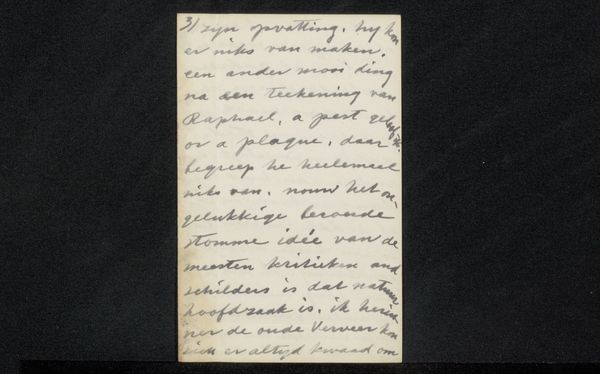 3) zyn opvatting. hy kon
er niks van maken.
een ander mooi ding
na een teekening van
Raphael, a pest geloof ik.
or a plague, daar
begreep he heelemeel
niks van. nouw het on-
gelukkige beroerde
stomme idée van de
meesten kritieken and
schilders is dat natuur
hoofdzaak is. ik herin
ner de oude Verveer kon
zich er altyd kwaad om